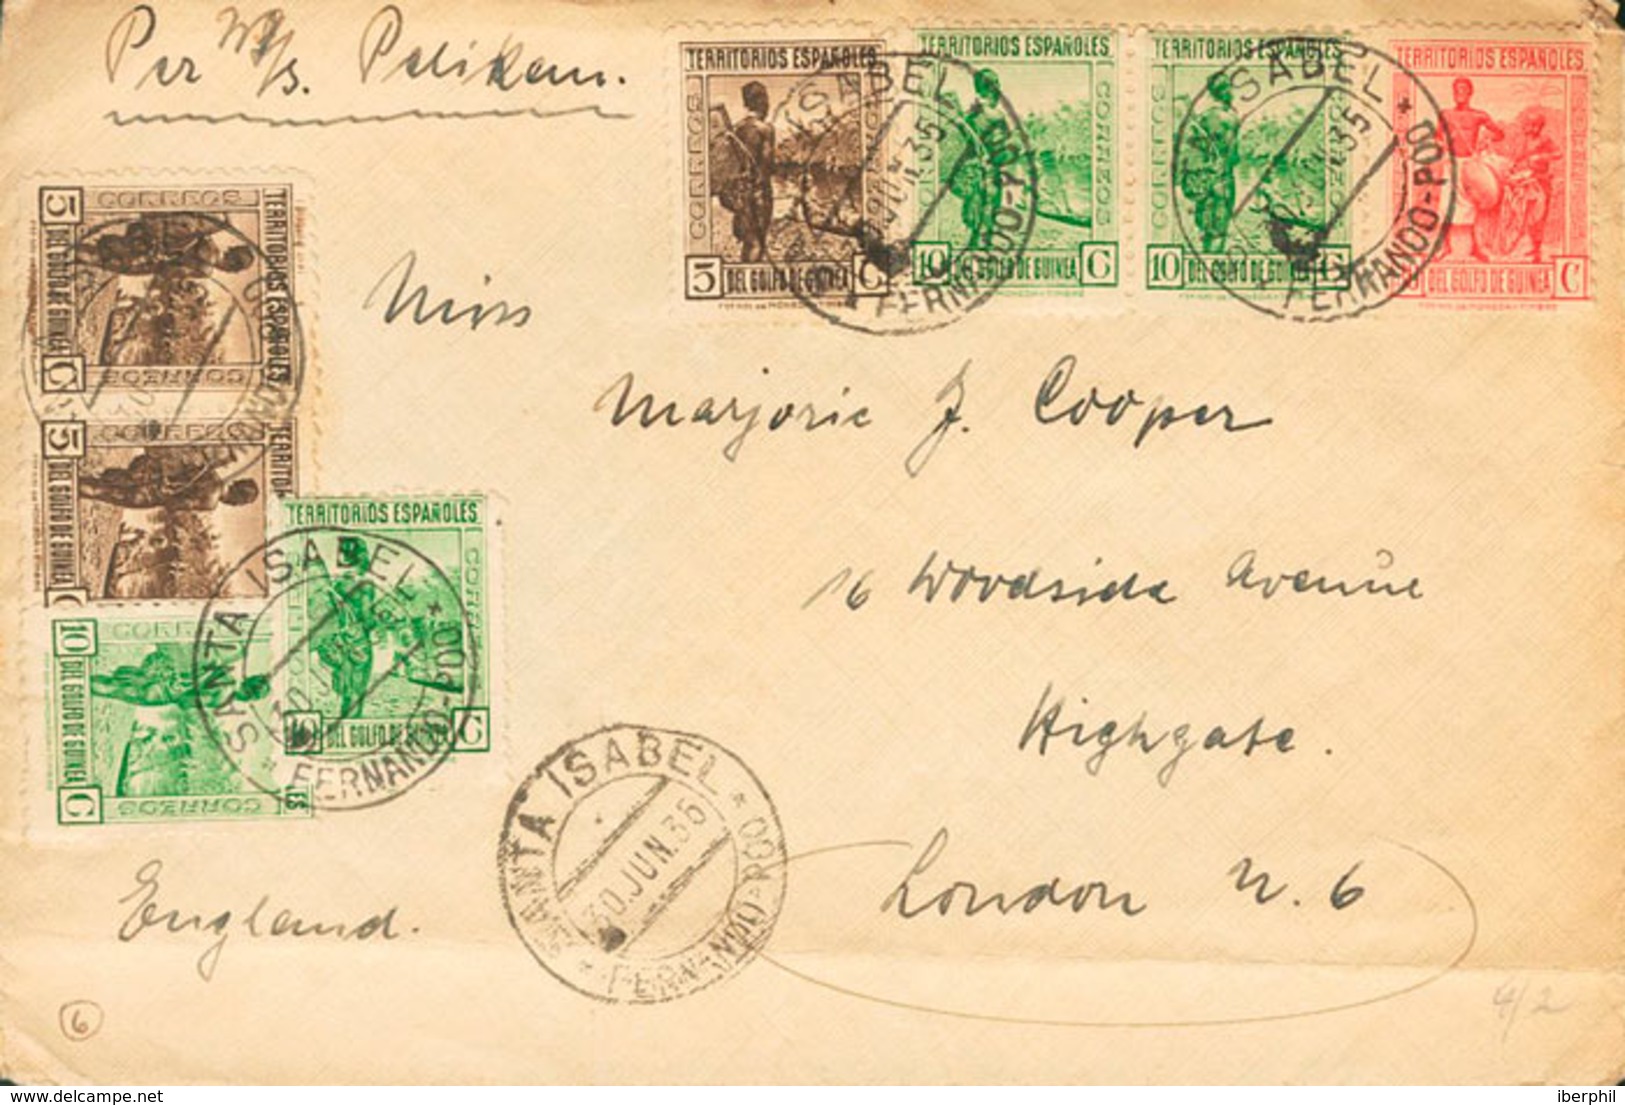 Per M/s. Pelikan.
TERRITORIOS ESPAÑOLES
CORREOS
5 DEL GOLFO DE GUINEA C
TERRITORIOS ESPAÑOLES
CORREOS
10 DEL GOLFO DE GUINEA C
TERRITORIOS ESPAÑOLES
CORREOS
10 DEL GOLFO DE GUINEA C
TERRITORIOS ESPAÑOLES
DEL GOLFO DE GUINEA C
ISABEL
FERNANDO-POO
ISABEL
FERNANDO-POO
TERRITORIOS ESPAÑOLES
CORREOS
CORREOS
5 DEL GOLFO DE GUINEA C
CORREOS
5 DEL GOLFO DE GUINEA C
Miss
Marjorie J. Cooper
16 Woodside Avenue
Highgate.
London N. 6
TERRITORIOS ESPAÑOLES
10 DEL GOLFO DE GUINEA C
SANTA ISABEL
30 JUN
FERNANDO-POO
10 DEL GOLFO DE GUINEA C
CORREOS
SANTA ISABEL
30.JUN.36
FERNANDO-POO
England.
6
4/2
delcampe.net
iberphil